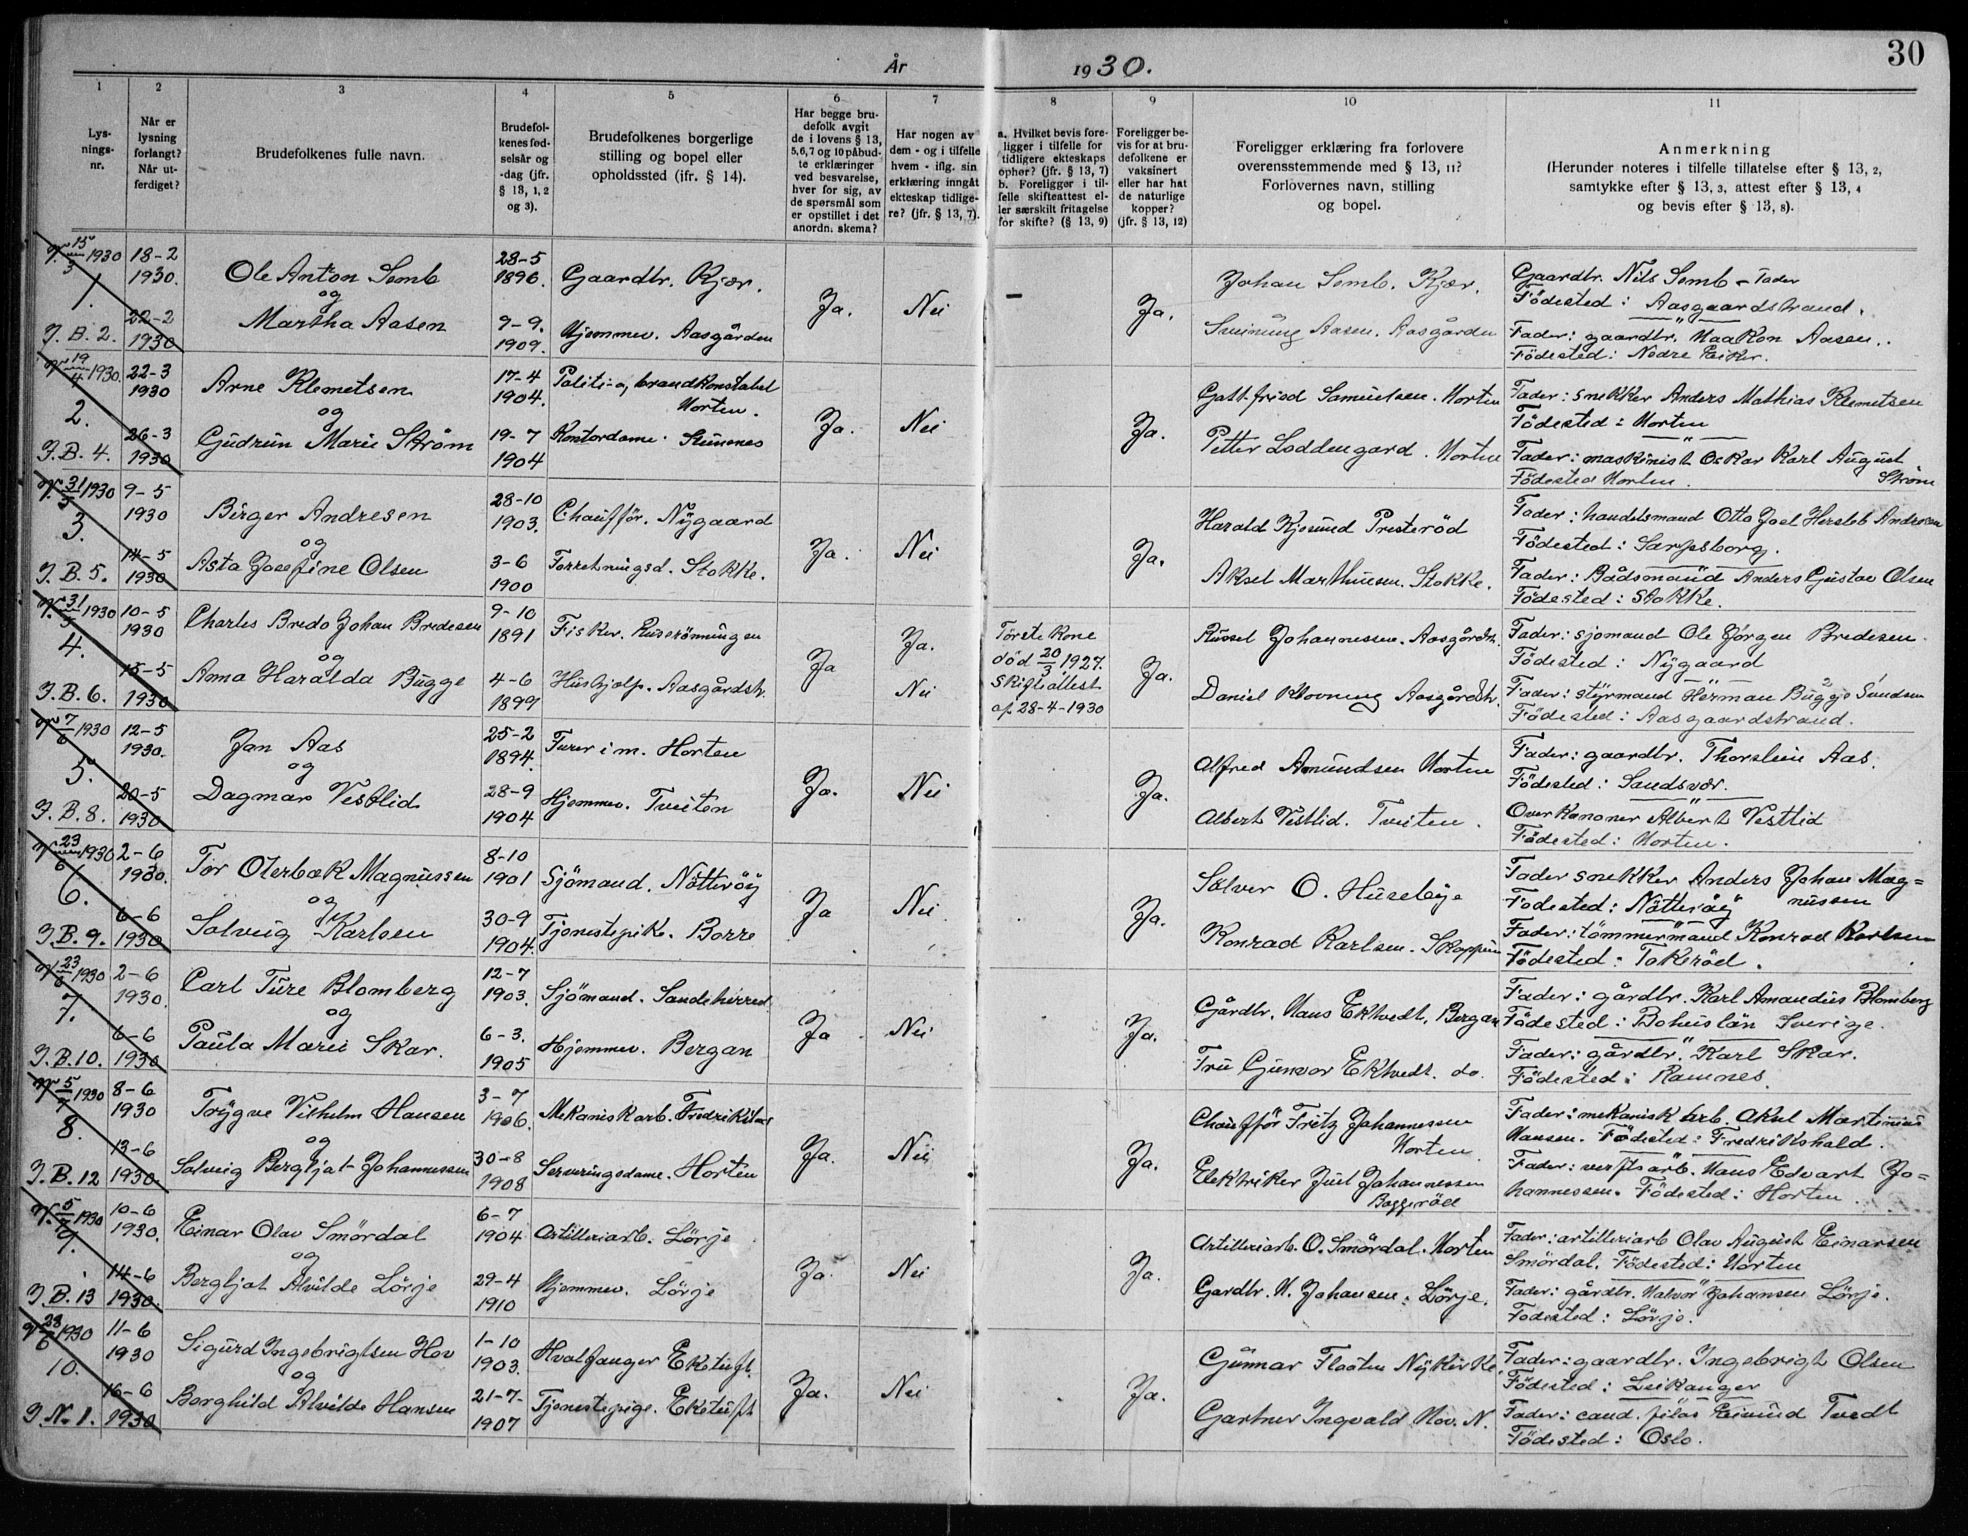 30
År 1930.
1
2
3
4
5
6
7
8
9
10
11
Lys-
nings-
nr.
Når er
lysning
forlangt?
Når ut-
ferdiget?
Brudefolkenes fulle navn.
Brudefol-
kenes fød-
selsår og
-dag (jfr.
§ 13, 1, 2
og 3).
Brudefolkenes borgerlige
stilling og bopel eller
opholdssted (ifr. § 14).
Har begge bru-
defolk avgit
de i lovens § 13,
5,6,7 og 10 påbud-
te erklæringer
ved besvarelse,
hver for sig, av
de spørsmål som
er opstillet i det
anordn. skema?
Har nogen av
dem - og i tilfelle
hvem - iflg. sin
erklæring inngåt
ekteskap tidlige-
re? (jfr. § 13, 7).
a. Hvilket bevis fore-
ligger i tilfelle for
tidligere ekteskaps
ophør? (jfr. § 13, 7)
b. Foreligger i til-
felle skifteattest el-
ler særskilt fritagelse
for skifte? (§ 13, 9)
Foreligger be-
vis for at bru-
defolkene er
vaksinert
eller har hat
de naturlige
kopper?
(jfr. § 13, 12)
Foreligger erklæring fra forlovere
overensstemmende med § 13, 11?
Forlovernes navn, stilling
og bopel.
Anmerkning
(Herunder noteres i tilfelle tillatelse efter § 13, 2,
samtykke efter § 13, 3, attest efter § 13, 4
og bevis efter § 13, 8).
V. 15/3 1930
1.
J. B. 2.
18-2
1930.
22-2
1930
Ole Anton Semb
og
Martha Aasen
28-5
1896.
9-9.
1909.
Gaardbr. Kjær.
Hjemmev. Aasgården
Ja.
Nei
-
Ja.
Johan Semb. Kjær.
Sveinung Aasen. Aasgården
Gaardbr. Nils Semb - Fader
Födested: Aasgaardstrand.
Fader: gaardbr. Haakon Aasen.
Födested: Nedre Eiker.
V. 19/4 1930.
2.
J. B. 4.
22-3
1930
26-3
1930
Arne Klemetsen
og
Gudrun Marie Strøm
17-4
1904.
19-7
1904
Politi- og brandkonstabel
Horten.
Kontordame.
Ja.
Nei
Ja.
Gottfried Samuelsen. Horten
Petter Loddengard. Horten
Fader: snekker Anders Mathias Klemetsen
Födested: Horten
Fader: maskinist Oskar Karl August
Strøm
Födested Horten.
V. 31/5 1930
3.
J. B. 5.
9-5
1930
14-5
1930
Birger Andresen
og
Asta Josefine Olsen
28-10
1903.
3-6
1900
Chauffør. Nygaard
Forretningsd. Stokke.
Ja.
Nei
Ja.
Harald Kjøsund Presterød
Aksel Marthinsen. Stokke.
Fader: handelsmand Otto Joel Hersleb Andresen
Födested: Sarpsborg.
Fader: Bådsmand Anders Gustav Olsen
Födested: Stokke.
V. 31/5 1930
4.
J. B. 6.
10-5
1930
15-5
1930
Charles Bredo Johan Bredesen
og
Anna Haralda Bugge
9-10
1891
4-6
1899
Fisker.
Hushjelp. Aasgårdstr.
Ja
Ja.
Nei
Første Kone
død 20/3 1927.
Skifteattest
af 28-4-1930
Ja.
Johannessen. Aasgårdstr.
Daniel Klovning Aasgårdstr.
Fader: sjømand Ole Jørgen Bredesen.
Födested: Nygaard
Fader: styrmand Herman Bugge Sundsen
Födested: Aasgaardstrand.
V 7/6 1930
5.
J. B. 8.
12-5
1930.
20-5
1930
Jan Aas
og
Dagmar Vestlid
25-2
1894.
28-9
1904
Furer i m. Horten
Hjemmev. Tveiten
Ja.
Nei
Ja.
Alfred Amundsen Horten
Albert Vestlid. Tveiten.
Fader: gaardbr. Thorstein Aas.
Födested: Sandsvær.
Overkanoner Albert Vestlid
Födested: Horten.
V 23/6 1930
6.
J. B. 9.
2-6
1930.
6-6
1930
Tor Oterbæk Magnussen
og
Solveig Karlsen
8-10
1901
30-9
1904.
Sjömand. Nötteröy
Tjenestepike. Borre
Ja
Nei
Ja.
Sölver O. Huseby
Konrad Karlsen. Skoppum
Fader snekker Anders Johan Mag=
nussen
Födested: Nötteröy
Fader: tömmermand Konrad Karlsen
Födested: Tokeröd.
V 23/6 1930
7.
J. B. 10.
2-6
1930.
6-6
1930
Carl Ture Blomberg
og
Paula Marie Skar.
12-7
1903.
6-3.
1905
Sjömand. Sandeherred
Hjemmev. Bergan
Ja
Nei
Ja.
Gårdbr. Hans Ektvedt, Bergan
Fru Gunvor Ektvedt. do.
Fader: gårdbr. Karl Amandus Blomberg
Födested: Bohuslän Sverige.
Fader: gårdbr. Karl Skar.
Födested: Ramnes.
V 5/7 1930
8.
J. B. 12
8-6
1930
13-6
1930.
Trygve Vilhelm Hansen
og
Solveig Bergljot Johannessen
3-7
1906.
30-8
1908
Mekanisk arb. Fredrikstad
Serveringsdame. Horten
Ja.
Nei
Ja.
Chauffør Fritz Johannessen
Horten
Elektriker Juel Johannessen
Baggeröd
Fader: mekanisk arb. Aksel Martinius
Hansen. Födested: Fredrikshald.
Fader: verftsarb. Hans Edvart Jo=
hannessen. Födested: Horten.
V. 5/7 1930
9.
J. B. 13
10-6
1930.
14-6
1930.
Einar Olav Smördal
og
Bergljot Alvilde Lörje
6-7
1904
29-4
1910
Artilleriarb. Lörje
Hjemmev. Lörje
Ja.
Nei
Ja.
Artilleriarb. O. Smördal. Horten
Gardbr. H. Johansen. Lörje.
Fader: artilleriarb Olav August Einarsen
Smördal. Födested: Horten
Fader: gårdbr. Halvor Johansen Lörje.
Födested: Lörje.
V 28/6 1930
10.
J. N. 1.
11-6
1930
16-6
1930
Sigurd Ingebrigtsen Hov
og
Borghild Alvilde Hansen
1-10
1903.
21-7-
1907
Hvalfanger Eketuft.
Tjenestepige. Eketuft
Ja.
Nei
Ja.
Gunnar Flaaten Nykirke
Gartner Ingvald Hov. N.
Fader: gaardbr. Ingebrigt Olsen
Födested: Leikanger
Fader: cand. filos Eivind Tvedt
Födested: Oslo.